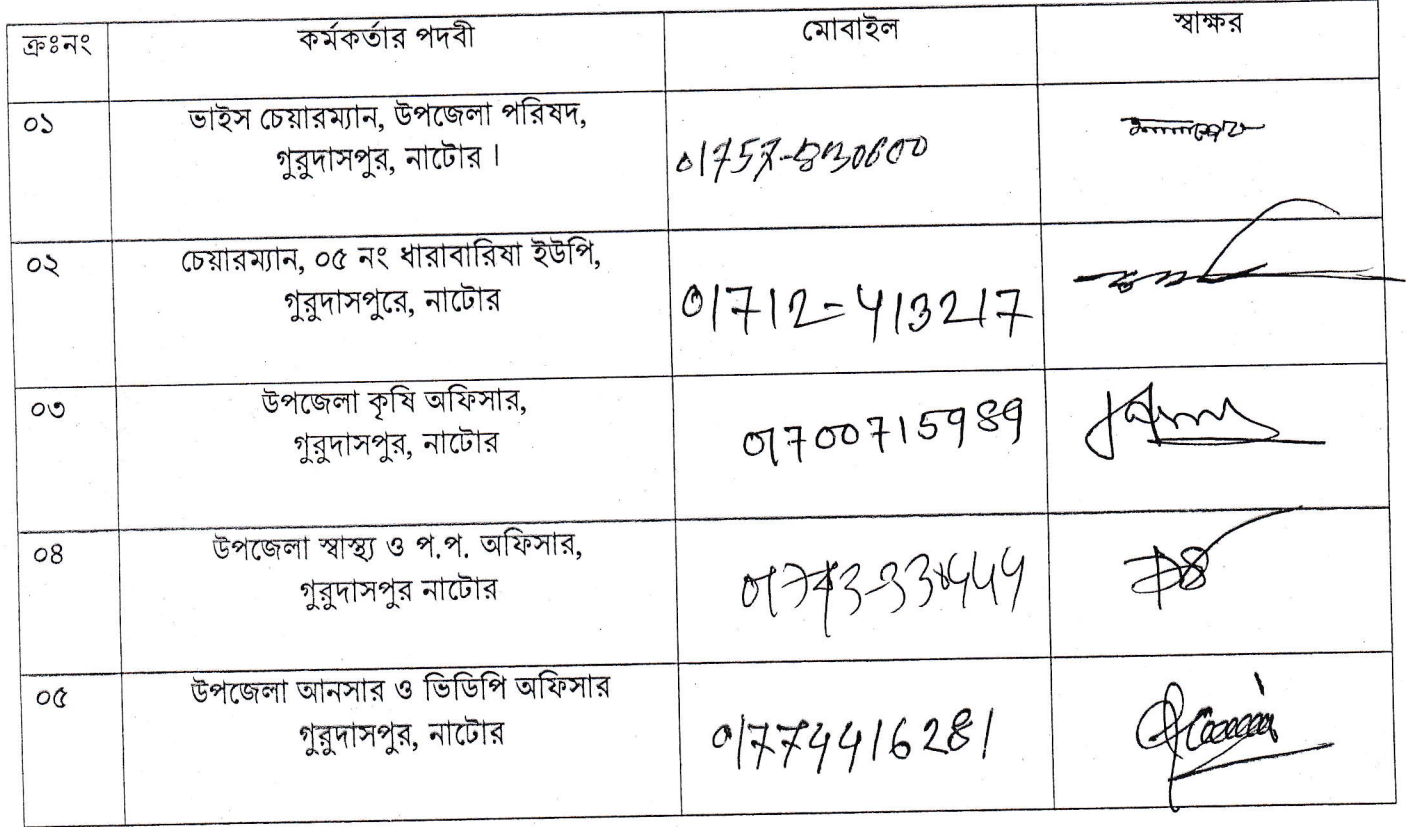 ক্রঃনং কর্মকর্তার পদবী মোবাইল স্বাক্ষর
০১ ভাইস চেয়ারম্যান, উপজেলা পরিষদ,
গুরুদাসপুর, নাটোর ।
০২ চেয়ারম্যান, ০৫ নং ধারাবারিষা ইউপি,
গুরুদাসপুরে, নাটোর 01712-413217
০৩ উপজেলা কৃষি অফিসার,
গুরুদাসপুর, নাটোর 01700715989
০৪ উপজেলা স্বাস্থ্য ও প.প. অফিসার,
গুরুদাসপুর নাটোর
০৫ উপজেলা আনসার ও ভিডিপি অফিসার
গুরুদাসপুর, নাটোর 01774416281